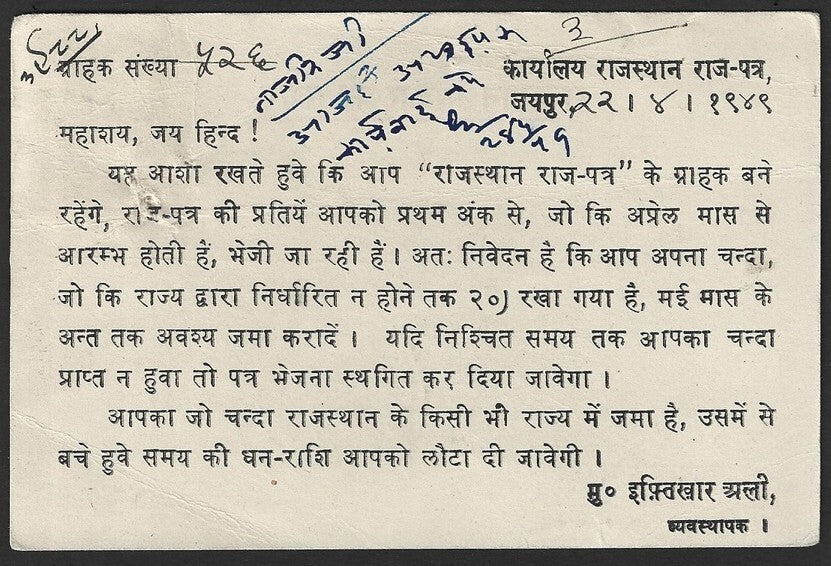 ग्राहक संख्या ५२६
३
कार्यालय राजस्थान राज-पत्र,
जयपुर, २२ । ४ । १९४९
महाशय, जय हिन्द !
यह आशा रखते हुवे कि आप “राजस्थान राज-पत्र” के ग्राहक बने
रहेंगे, राज-पत्र की प्रतियें आपको प्रथम अंक से, जो कि अप्रेल मास से
आरम्भ होती हैं, भेजी जा रही हैं । अतः निवेदन है कि आप अपना चन्दा,
जो कि राज्य द्वारा निर्धारित न होने तक २०) रखा गया है, मई मास के
अन्त तक अवश्य जमा करादें । यदि निश्चित समय तक आपका चन्दा
प्राप्त न हुवा तो पत्र भेजना स्थगित कर दिया जावेगा ।
आपका जो चन्दा राजस्थान के किसी भी राज्य में जमा है, उसमें से
बचे हुवे समय की धन-राशि आपको लौटा दी जावेगी ।
मु० इफ़्तिखार अली,
व्यवस्थापक ।